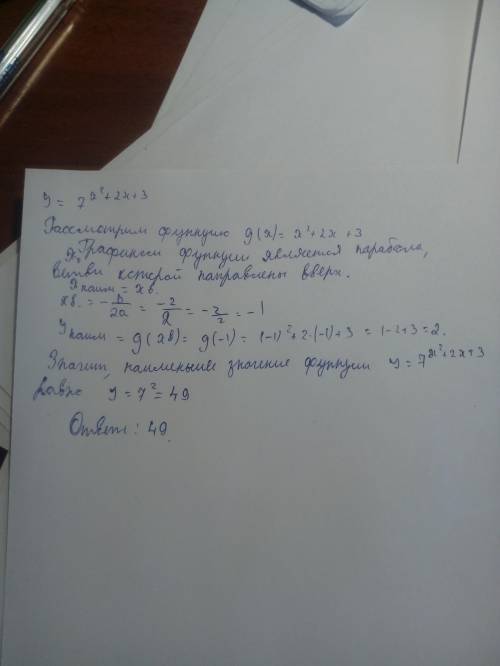 y = 7^(x²+2x+3)
Рассмотрим функцию g(x) = x²+2x+3
Графиком функции является парабола,
ветви которой направлены вверх.
x наим = xв.
xв. = -b/2a = -2/2 = -2/2 = -1
y наим = g(xв) = g(-1) = (-1)²+2·(-1)+3 = 1-2+3=2.
Значит, наименьшее значение функции y = 7^(x²+2x+3)
равно y = 7² = 49
Ответ: 49.